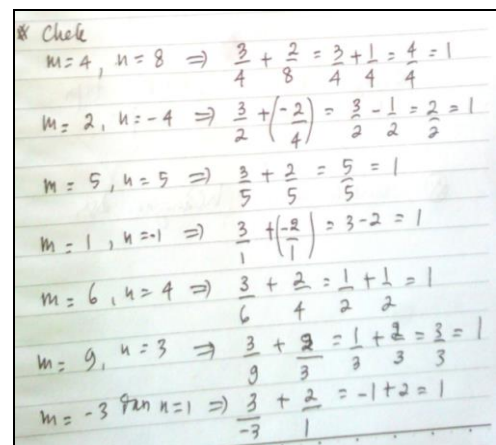 * Chek
m = 4, n = 8 ⇒ 3/4 + 2/8 = 3/4 + 1/4 = 4/4 = 1
m = 2, n = -4 ⇒ 3/2 + (-2/4) = 3/2 - 1/2 = 2/2 = 1
m = 5, n = 5 ⇒ 3/5 + 2/5 = 5/5 = 1
m = 1, n = -1 ⇒ 3/1 + (-2/1) = 3 - 2 = 1
m = 6, n = 4 ⇒ 3/6 + 2/4 = 1/2 + 1/2 = 1
m = 9, n = 3 ⇒ 3/9 + 2/3 = 1/3 + 2/3 = 3/3 = 1
m = -3 dan n = 1 ⇒ 3/-3 + 2/1 = -1 + 2 = 1